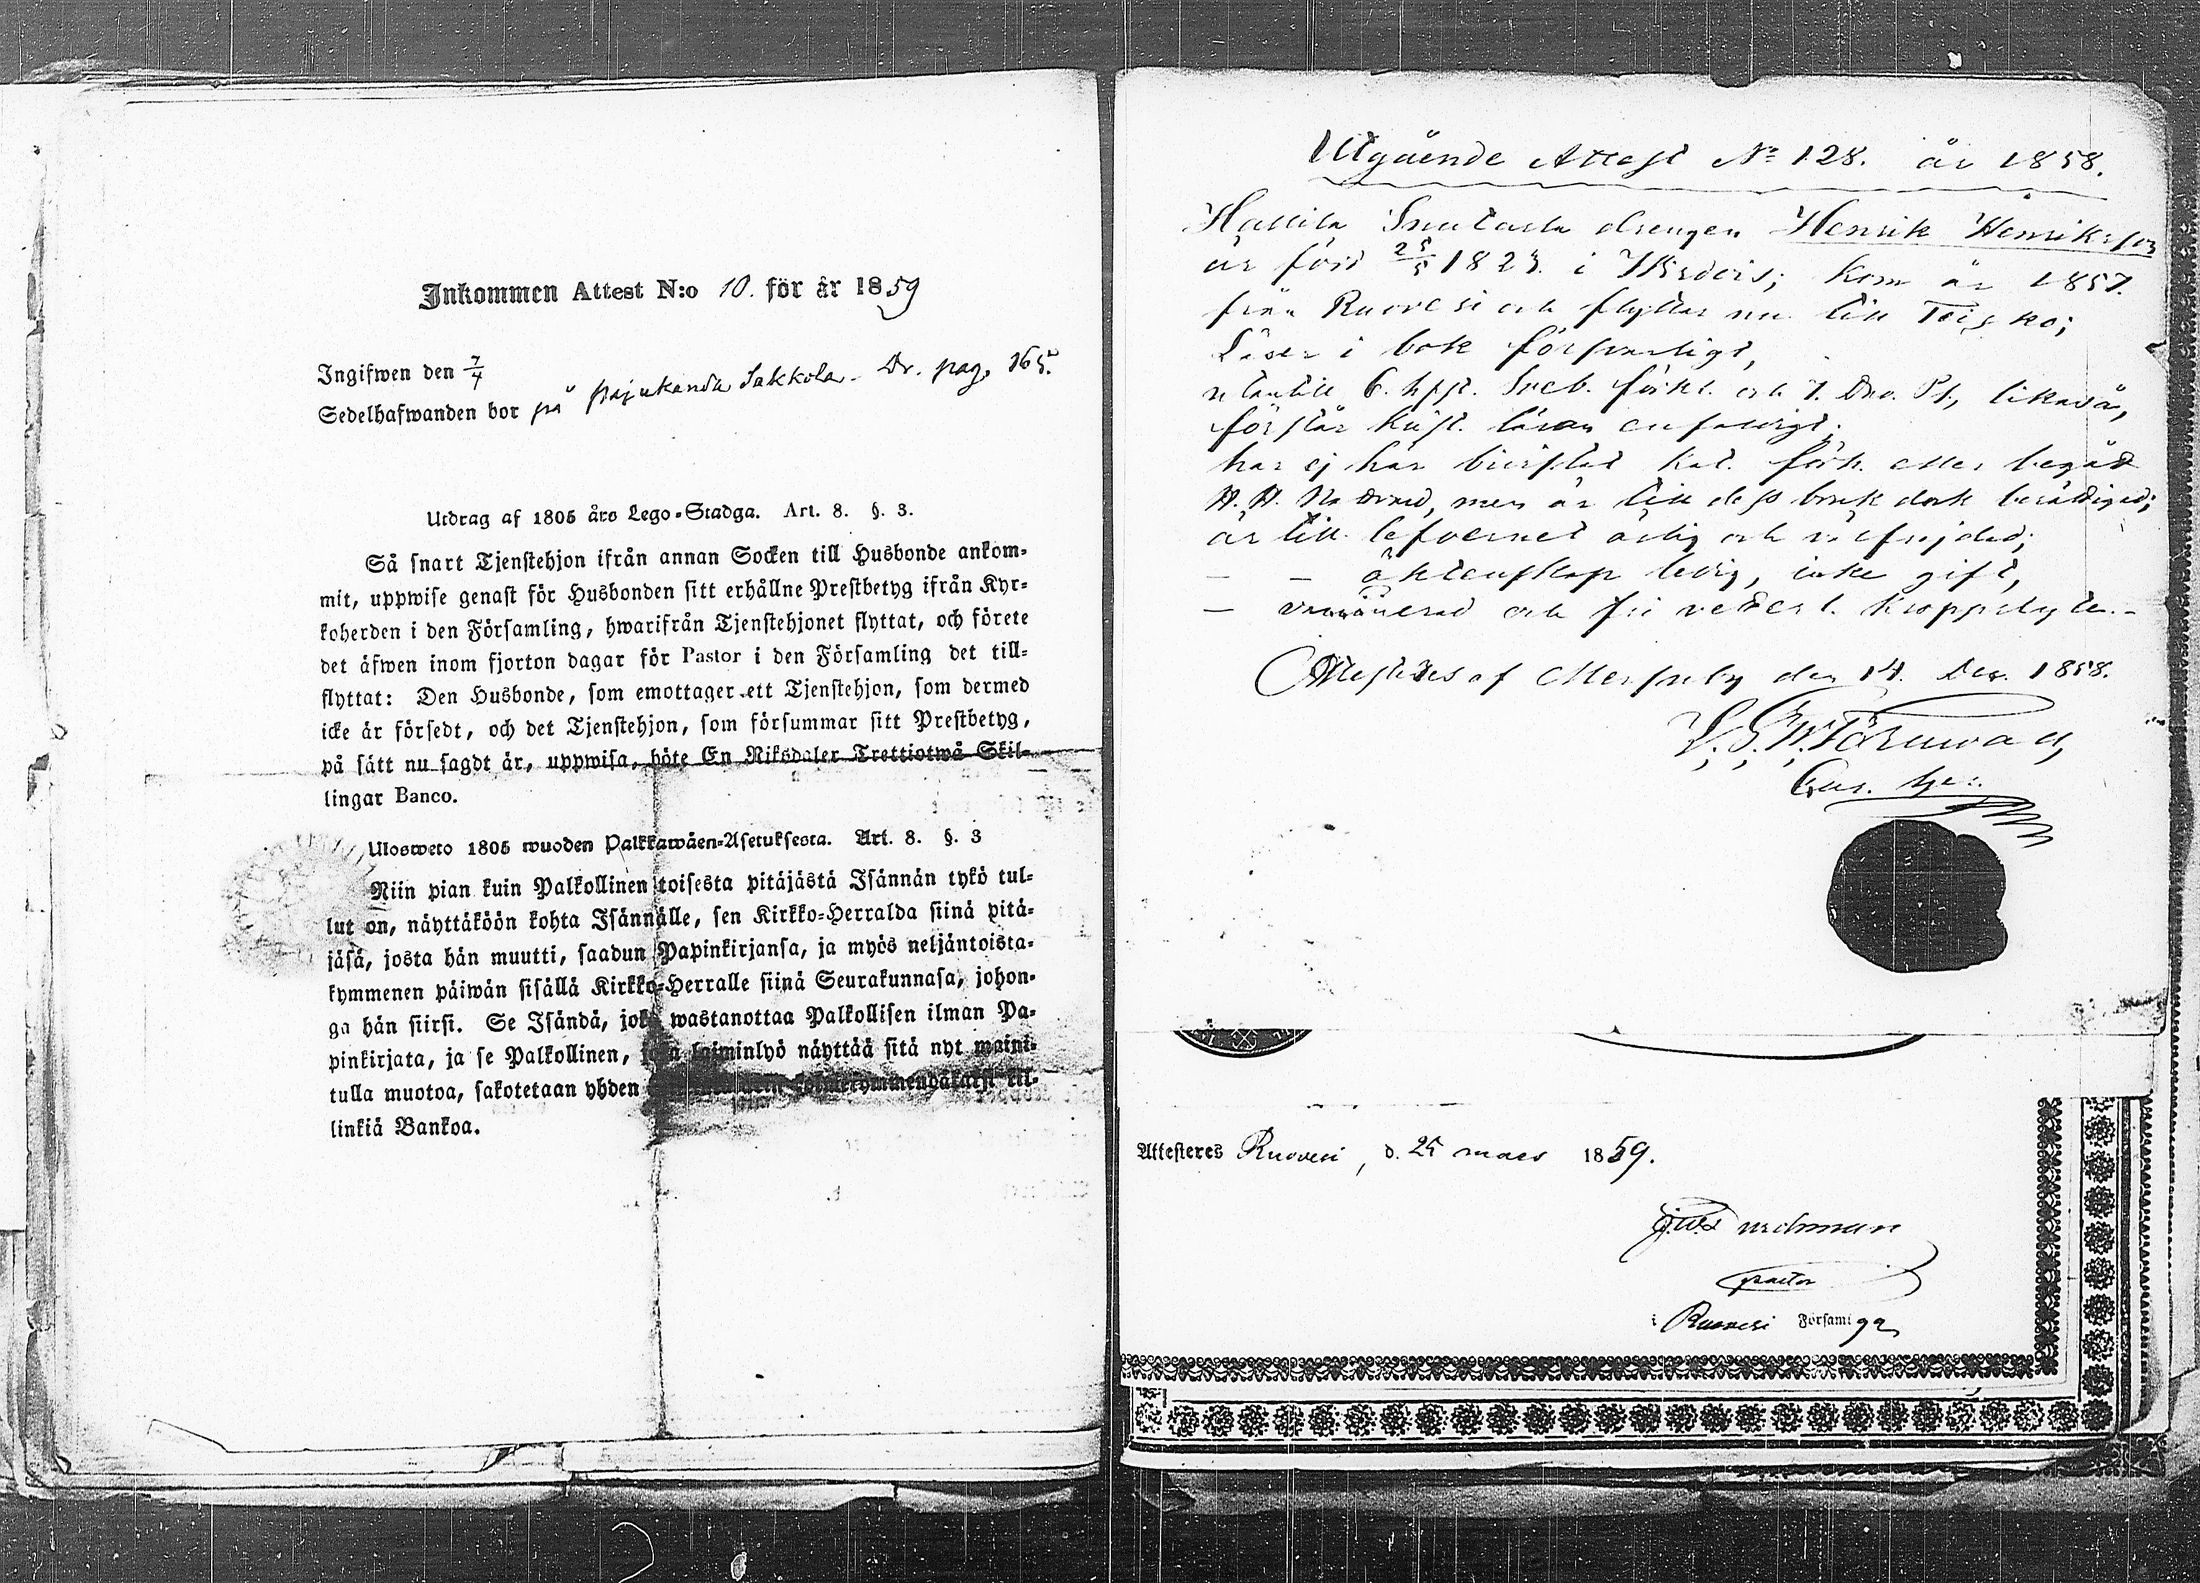 Inkommen Attest N:o 10. för år 1859
Ingifwen den 7/4
Sedelhafwanden bor på Pajukanda Sakkola. Dr. pag. 165.
Utdrag af 1805 års Lego-Stadga. Art. 8. §. 3.
Så snart Tjenstehjon ifrån annan Socken till Husbonde ankom-
mit, uppwise genast för Husbonden sitt erhållne Prestbetyg ifrån Kyr-
koherden i den Församling, hwarifrån Tjenstehjonet flyttat, och förete
det äfwen inom fjorton dagar för Pastor i den Församling det till-
flyttat: Den Husbonde, som emottager ett Tjenstehjon, som dermed
icke är försedt, och det Tjenstehjon, som försummar sitt Prestbetyg,
på sätt nu sagdt är, uppwisa, böte En Riksdaler Trettiotwå Skil-
lingar Banco.
Ulosweto 1805 wuoden Palkkawäen-Asetuksesta. Art. 8. §. 3
Niin pian kuin Palkollinen toisesta pitäjästä Isännän tykö tul-
lut on, näyttäköön kohta Isännälle, sen Kirkko-Herralda siinä pitä-
jäsä, josta hän muutti, saadun Papinkirjansa, ja myös neljäntoista-
kymmenen päiwän sisällä Kirkko-Herralle siinä Seurakunnasa, johon-
ga hän siirsi. Se Isändä, joka wastanottaa Palkollisen ilman Pa-
pinkirjata, ja se Palkollinen, joka laiminlyö näyttää sitä nyt maini-
tulla muotoa, sakotetaan yhden kolmekymmendäkaksi kil-
linkiä Bankoa.
Utgående Attest No 128. år 1858.
drengen Henrik Henriksson
är född 25/5 1823. i Wirdois; kom år 1857.
från Ruovesi och flyttar nu till Teisko;
Läser i bok försvarligt,
utantill 6. hpst. Sveb. förkl. och 7. Dav. Ps., likaså,
förstår krist. läran enfaldigt;
har ej här bivistat kat. förh. eller begått
H. H. Nattvard, men är till dess bruk dock berättigad;
är till lefvernet ärlig och välfrejdad;
— — äktenskap ledig, icke gift,
— vaccinerad och fri kroppslyte.-
Attesteras af den 14. Dec. 1858.
Attesteres Ruovesi, d. 25 mars 1859.
pastor
i Ruovesi Församl ga